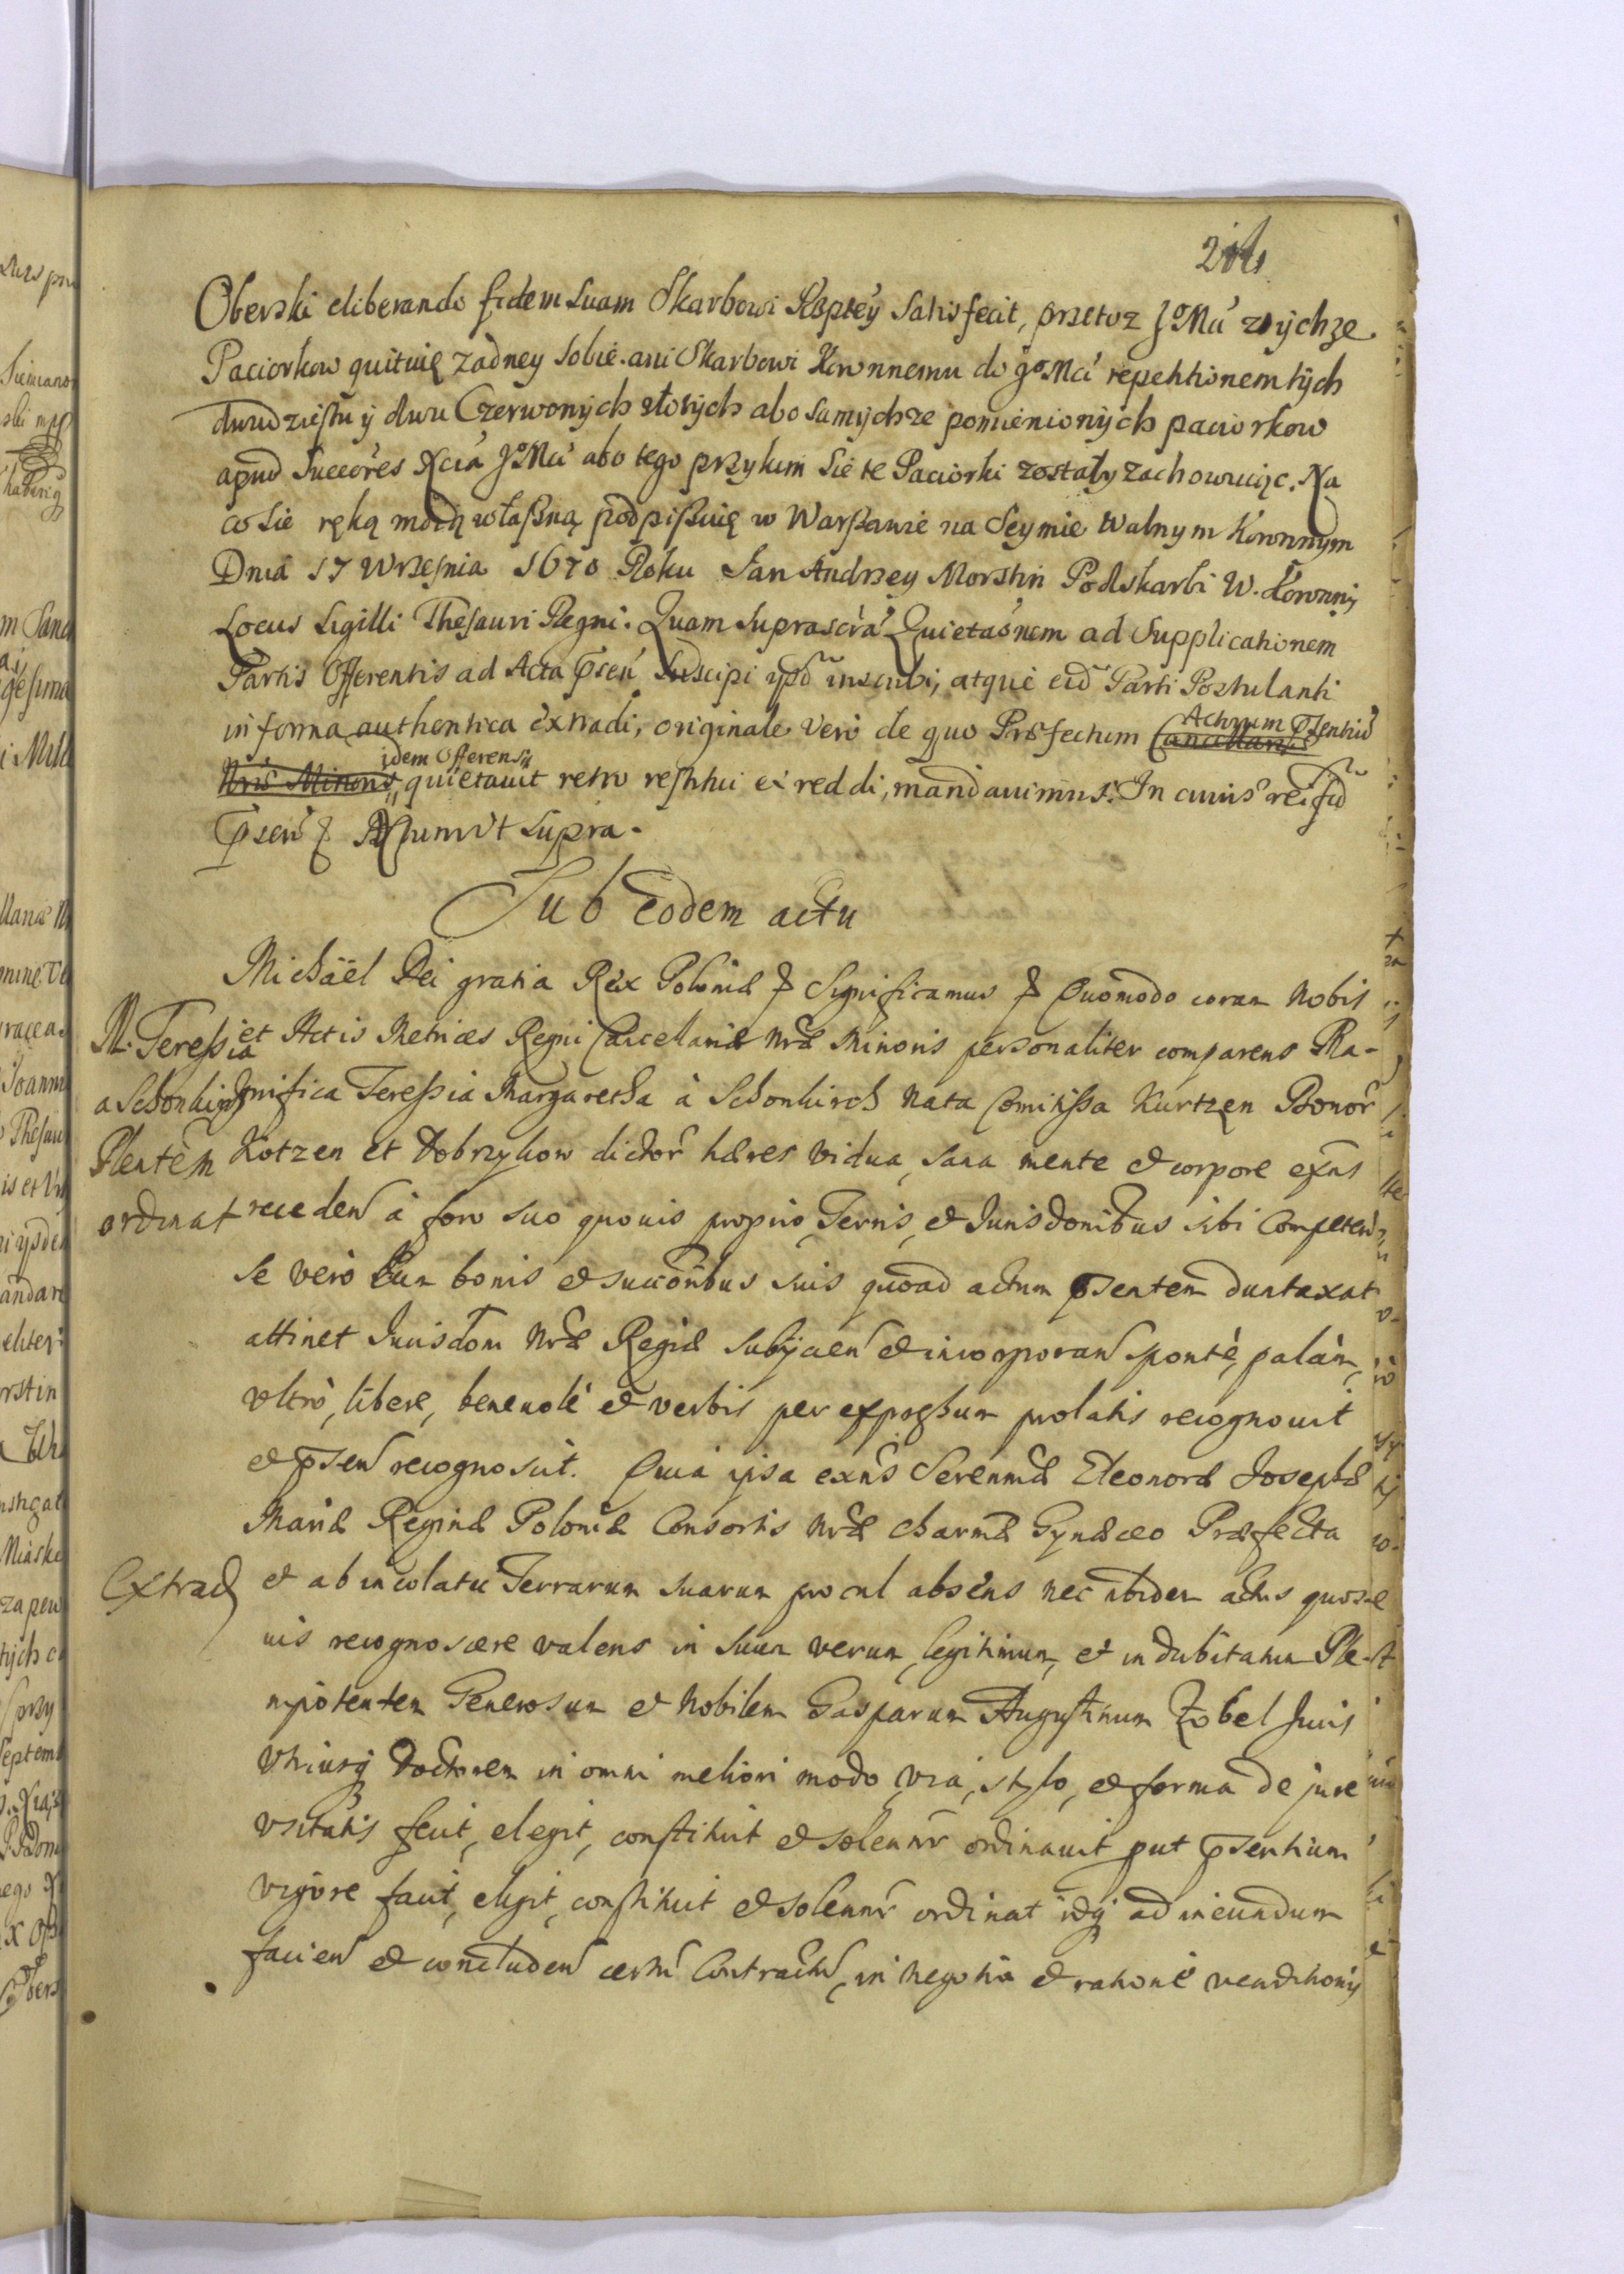 Oberski eliberando fidem suam Skarbowi Rzptey satisfecit, przetoz JoMći z tychze
Paciorkow quituię zadney sobie ani Skarbowi Koronnemu do JoMći repetitionem tych
dwudziestu y dwu Czerwonych złotych abo samychze pomienionych paciorkow
apud succores Xcia JoMći abo tego przy kim sie te Paciorki zostały zachowuiąc. Na
co sie ręką moią własną podpisuię w Warszawie na Seymie Walnym Koronnym
Dnia 17 Wrzesnia 1670 Roku Jan Andrzey Morstin Podskarbi W. Koronny
Locus Sigilli Thesauri Regni. Quam suprascra Quietaonem ad Supplicationem
Partis Offerentis ad Acta pseń suscipi ysd inscribi, atque eid Parti Postulanti
in forma authentica extradi, originale vero de quo Præfectum Cancellariæ Actorum psentiu
Nræ Minoris idem Offerens quietauit retro restitui et reddi, mandauimus. In cuius rei fid
pseń Actum Vt supra.
Sub Eodem actu
Michaël Dei gratia Rex Poloniæ Significamus Quomodo coram Nobis
et Actis Metrices Regni Cancellariæ Nræ Minoris personaliter comparens Ma-
gnifica Teressia Margaretha à Schonkirch Nata Comitissa Kurtzen Bonor
Kotzen et Dobrzykow dictor hæres vidua, sana mente et corpore exñs
receden à foro suo quouis proprio, Terris, et Jurisdonibus sibi Competen
se vero cum bonis et succoribus suis quoad actum psentem duntaxat
attinet Jurisdom Nræ Regiæ subÿcien et incorporan sponte, palàm,
vltrò, libere, beneuolè et verbis per expressum prolatis recognouit
et psen recognoscit. Quia ipsa exñs Serenmæ Eleonoræ Josephæ
Mariæ Reginæ Poloniæ Consortis Nræ charmæ Gynæceo Præfecta
et ab incolatu Terrarum suarum procul absens nec ibidem actus quos-
uis recognoscere valens in suum verum, legitimum, et indubitatum Ple-
nipotentem Generosum et Nobilem Gasparum Augustinum Zobel Juris
Vtriusq Doctorem in omni meliori modo, via, stylo, et forma de jure
vsitatis fecit, elegit, constituit et solennr ordinauit put psentium
vigore facit, elegit, constituit et solennr ordinat idq ad ineundum
facien et concluden certu Contractu, in negotio et ratione venditionis
M. Teressia
a Schonkirch
Plentem
ordinat
Extrad